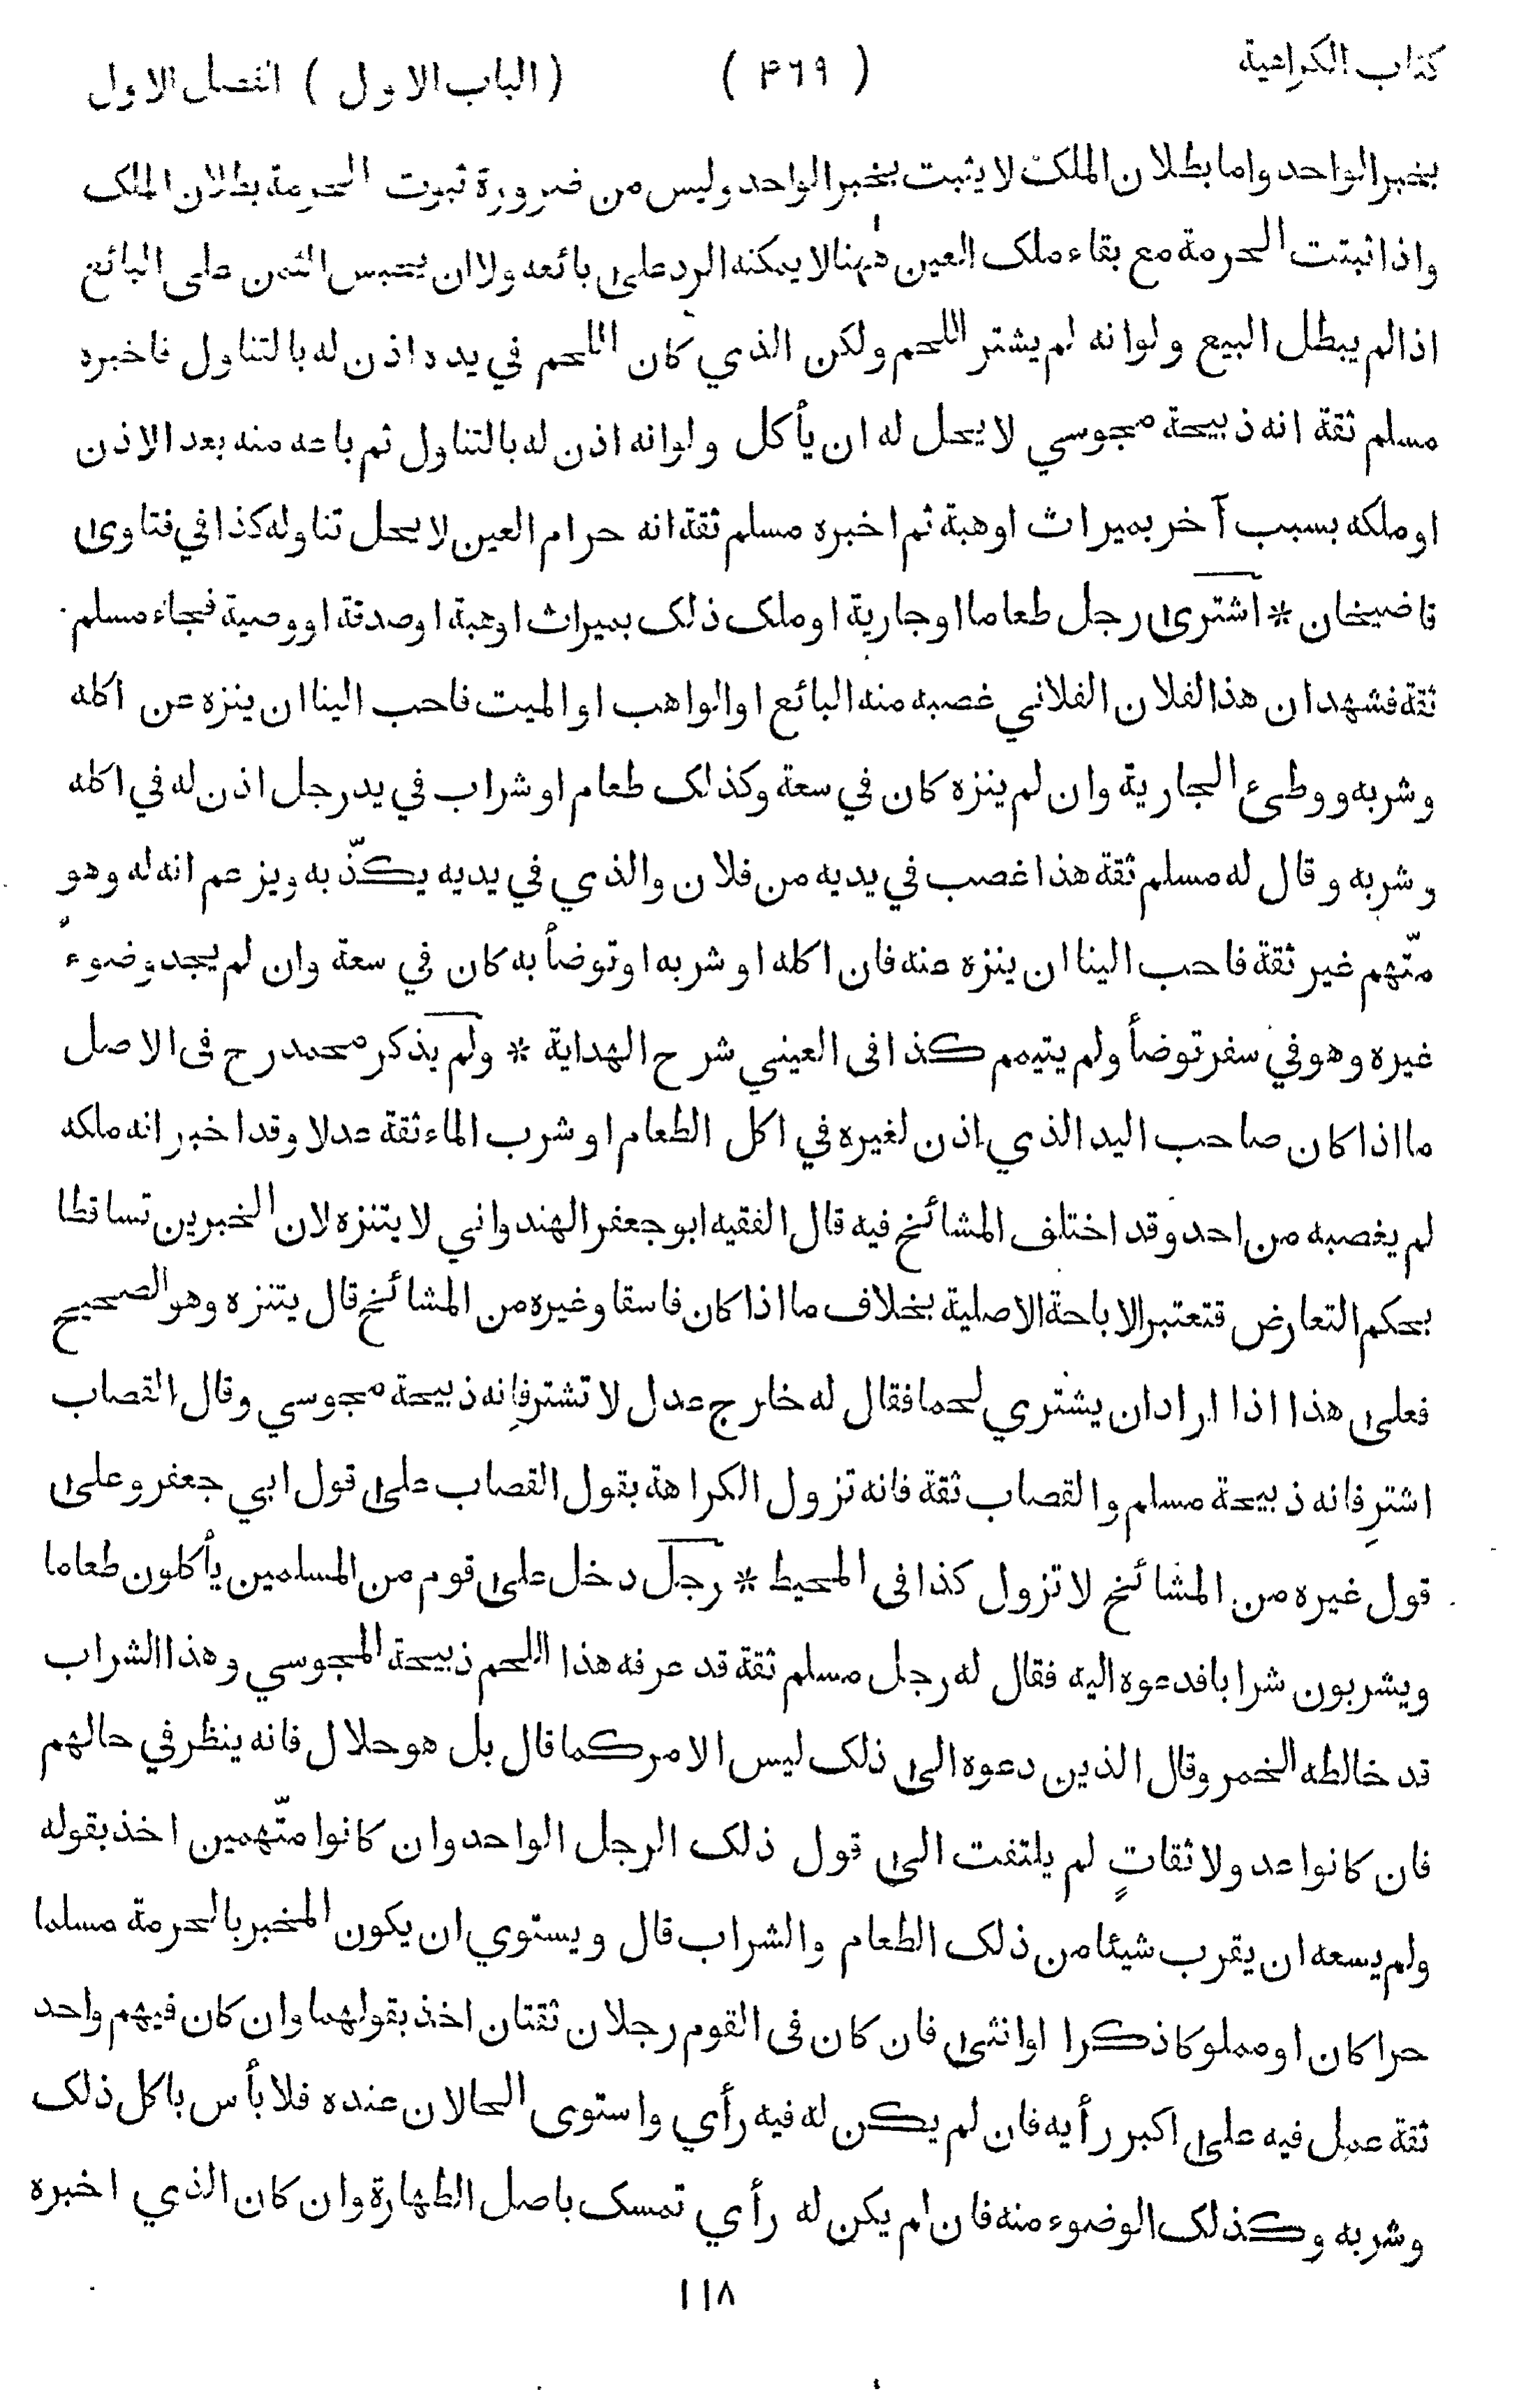 كتاب الكراهية ( ۴۶۹ ) ( الباب الاول ) الفصل الاول
بخبر الواحد واما بطلان الملك لا يثبت بخبر الواحد وليس من ضرورة ثبوت الحرمة بطلان الملك
واذا ثبتت الحرمة مع بقاء ملك العين ههنا لا يمكنه الرد على بائعه ولا ان يحبس الثمن على البائع
اذا لم يبطل البيع ولو انه لم يشتر اللحم ولكن الذي كان اللحم في يده اذن له بالتناول فاخبره
مسلم ثقة انه ذبيحة مجوسي لا يحل له ان يأكل ولو انه اذن له بالتناول ثم باعه منه بعد الاذن
او ملكه بسبب آخر بميراث او هبة ثم اخبره مسلم ثقة انه حرام العين لا يحل تناوله كذا في فتاوى
قاضيخان * اشترى رجل طعاما او جارية او ملك ذلك بميراث او هبة او صدقة او وصية فجاء مسلم
ثقة فشهد ان هذا لفلان الفلاني غصبه منه البائع او الواهب او الميت فاحب الينا ان ينزه عن اكله
وشربه ووطئ الجارية وان لم ينزه كان في سعة وكذلك طعام او شراب في يد رجل اذن له في اكله
وشربه وقال له مسلم ثقة هذا غصب في يديه من فلان والذي في يديه يكذّبه ويزعم انه له وهو
متّهم غير ثقة فاحب الينا ان ينزه عنه فان اكله او شربه او توضأ به كان في سعة وان لم يجد وضوءً
غيره وهو في سفر توضأ ولم يتيمم كذا فى العيني شرح الهداية * ولم يذكر محمد رح فى الاصل
ما اذا كان صاحب اليد الذي اذن لغيره في اكل الطعام او شرب الماء ثقة عدلا وقد اخبر انه ملكه
لم يغصبه من احد وقد اختلف المشائخ فيه قال الفقيه ابو جعفر الهندواني لا يتنزه لان الخبرين تساقطا
بحكم التعارض فتعتبر الاباحة الاصلية بخلاف ما اذا كان فاسقا وغيره من المشائخ قال يتنزه وهو الصحيح
فعلى هذا اذا اراد ان يشتري لحما فقال له خارج عدل لا تشترِ فانه ذبيحة مجوسي وقال القصاب
اشترِ فانه ذبيحة مسلم والقصاب ثقة فانه تزول الكراهة بقول القصاب على قول ابي جعفر وعلى
قول غيره من المشائخ لا تزول كذا فى المحيط * رجل دخل على قوم من المسلمين يأكلون طعاما
ويشربون شرابا فدعوه اليه فقال له رجل مسلم ثقة قد عرفه هذا اللحم ذبيحة المجوسي وهذا الشراب
قد خالطه الخمر وقال الذين دعوه الى ذلك ليس الامر كما قال بل هو حلال فانه ينظر في حالهم
فان كانوا عدولا ثقاتٍ لم يلتفت الى قول ذلك الرجل الواحد وان كانوا متّهمين اخذ بقوله
ولم يسعه ان يقرب شيئا من ذلك الطعام والشراب قال ويستوي ان يكون المخبر بالحرمة مسلما
حرا كان او مملوكا ذكرا او انثى فان كان فى القوم رجلان ثقتان اخذ بقولهما وان كان فيهم واحد
ثقة عمل فيه على اكبر رأيه فان لم يكن له فيه رأي واستوى الحالان عنده فلا بأس باكل ذلك
وشربه وكذلك الوضوء منه فان لم يكن له رأي تمسك باصل الطهارة وان كان الذي اخبره
١١٨